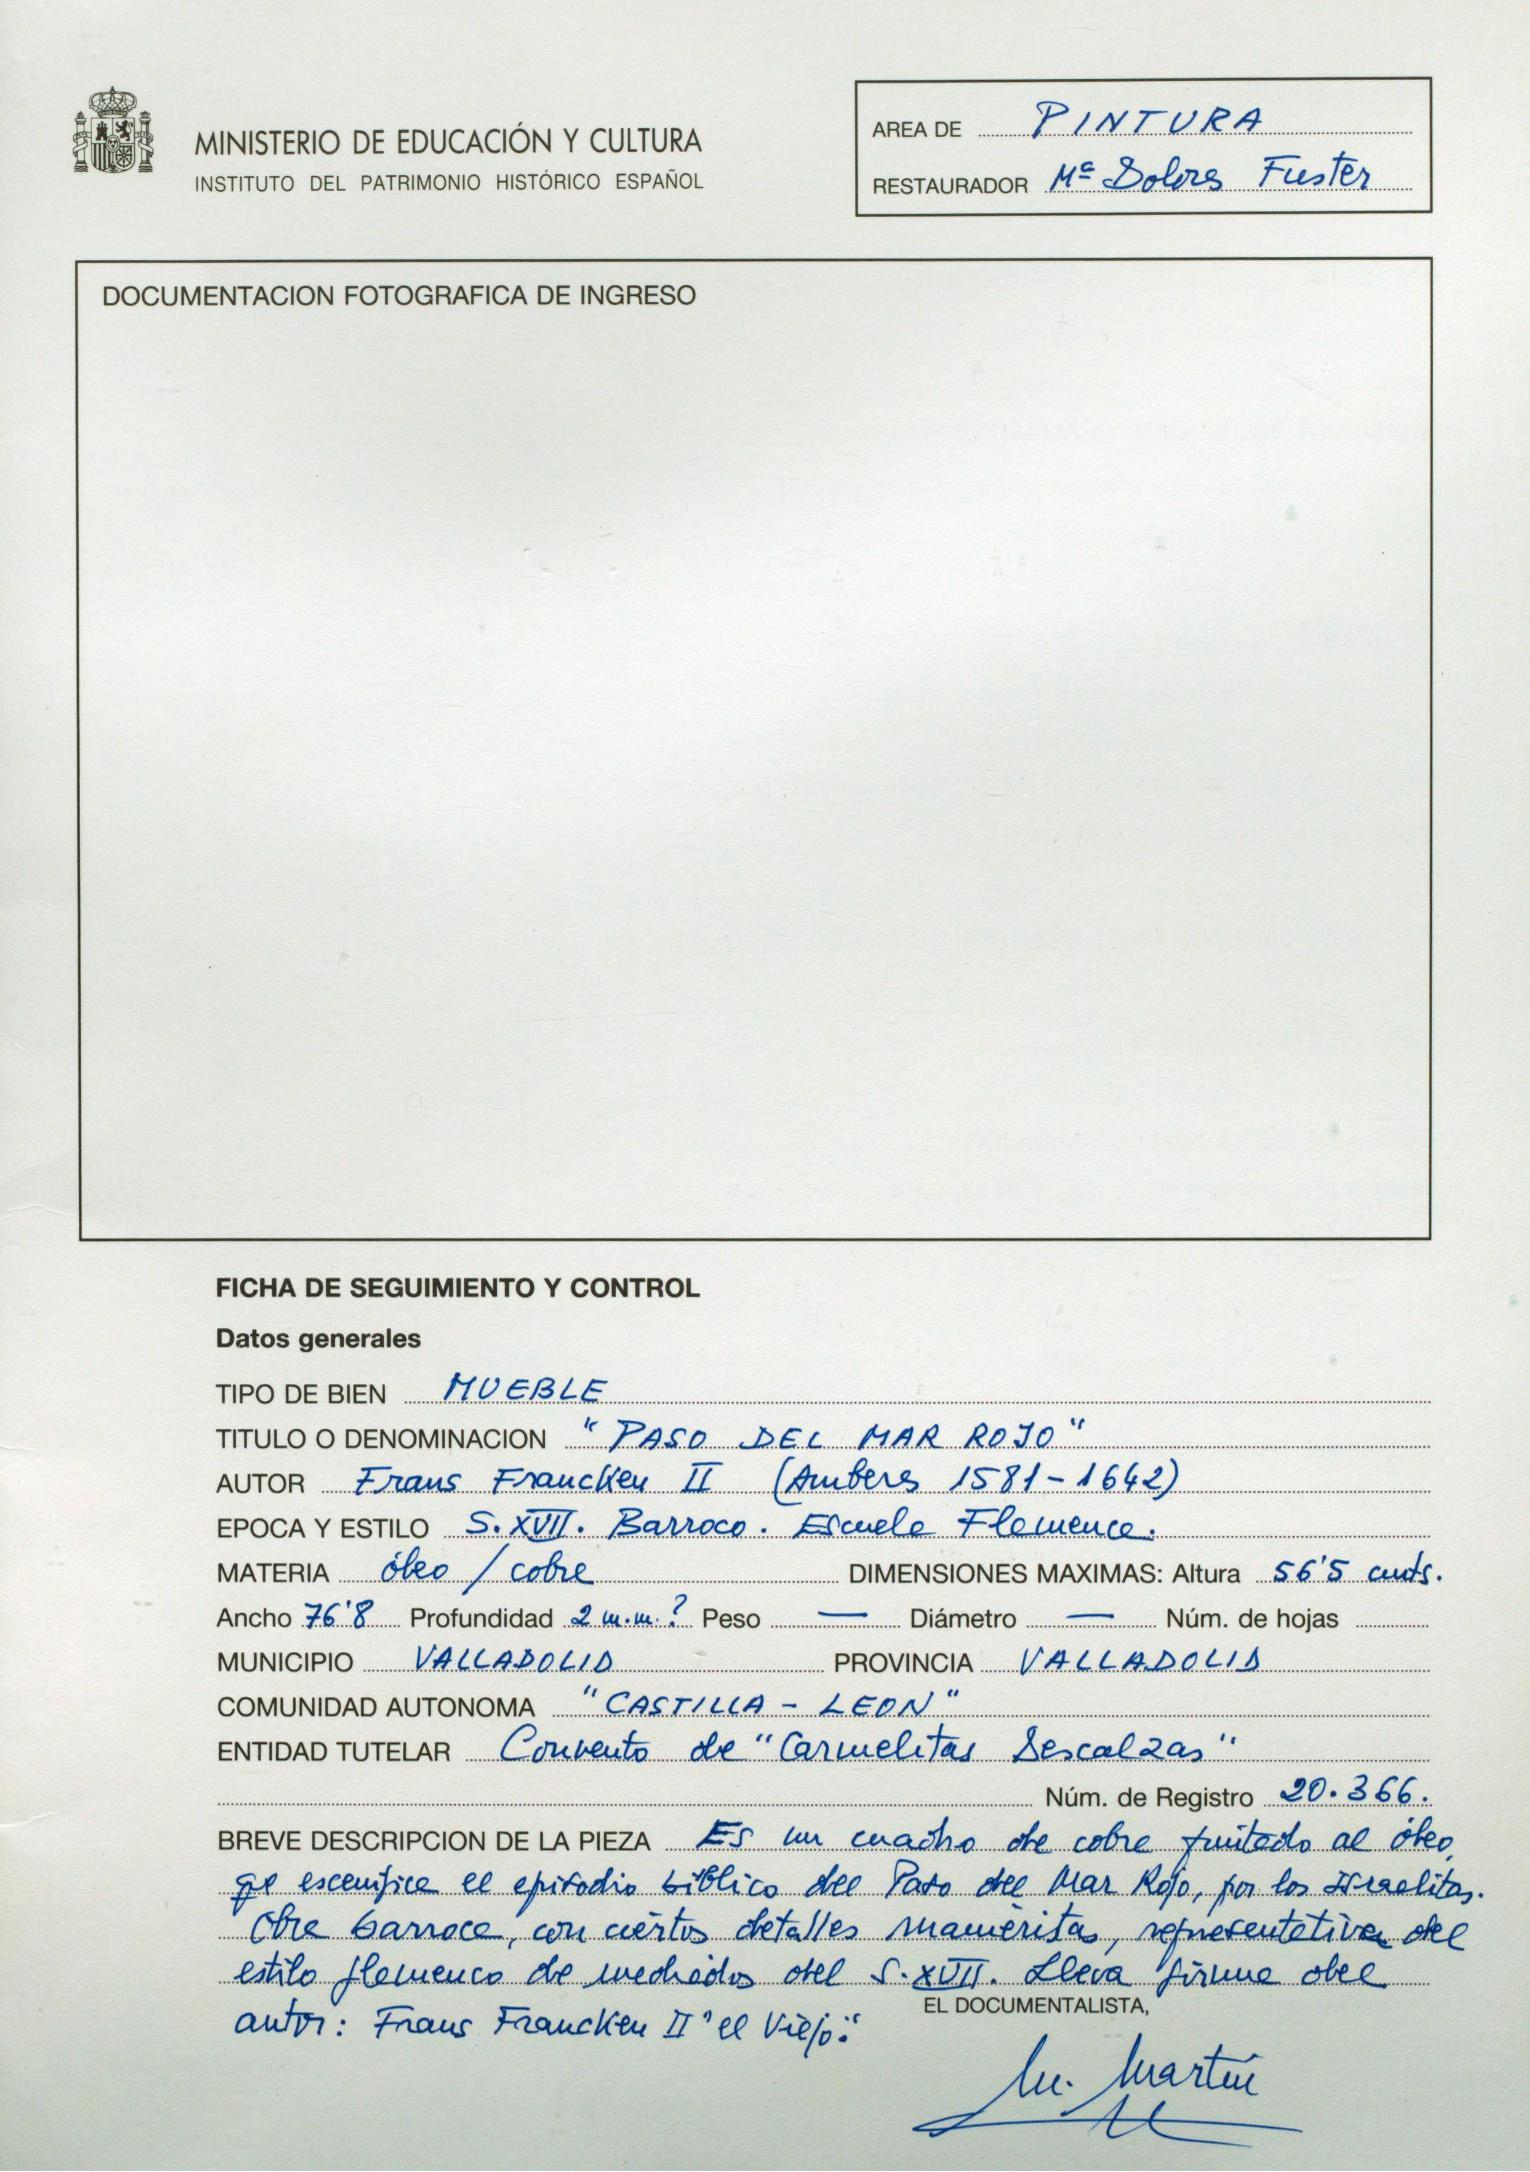 MINISTERIO DE EDUCACIÓN Y CULTURA
INSTITUTO DEL PATRIMONIO HISTÓRICO ESPAÑOL
AREA DE PINTURA
RESTAURADOR Mª Dolores Fuster
DOCUMENTACION FOTOGRAFICA DE INGRESO
FICHA DE SEGUIMIENTO Y CONTROL
Datos generales
TIPO DE BIEN MUEBLE
TITULO O DENOMINACION "PASO DEL MAR ROJO"
AUTOR Frans Francken II (Amberes 1581-1642)
EPOCA Y ESTILO S. XVII. Barroco. Escuela Flamenca.
MATERIA óleo / cobre DIMENSIONES MAXIMAS: Altura 56'5 cmts.
Ancho 76'8 Profundidad 2 m.m.? Peso — Diámetro — Núm. de hojas
MUNICIPIO VALLADOLID PROVINCIA VALLADOLID
COMUNIDAD AUTONOMA "CASTILLA - LEON"
ENTIDAD TUTELAR Convento de "Carmelitas Descalzas"
Núm. de Registro 20.366.
BREVE DESCRIPCION DE LA PIEZA Es un cuadro de cobre pintado al óleo,
qe escenifica el episodio bíblico del Paso del Mar Rojo, por los Israelitas.
Obra barroca, con ciertos detalles manieristas, representativa del
estilo flamenco de mediados del S. XVII. Lleva firma del
autor: Frans Francken II "el Viejo."
EL DOCUMENTALISTA,
M. Martín